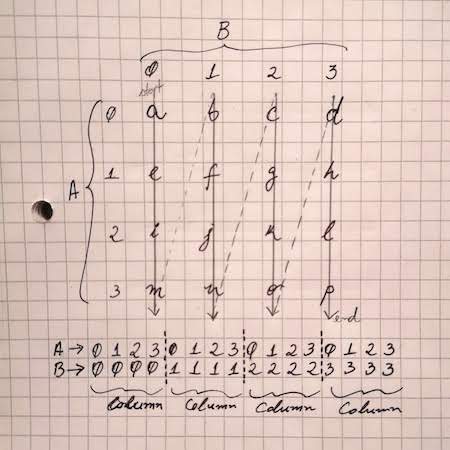 B
0 1 2 3
start
0 a b c d
A
1 e f g h
2 i j k l
3 m n o p
end
A → 0 1 2 3 0 1 2 3 0 1 2 3 0 1 2 3
B → 0 0 0 0 1 1 1 1 2 2 2 2 3 3 3 3
Column Column Column Column